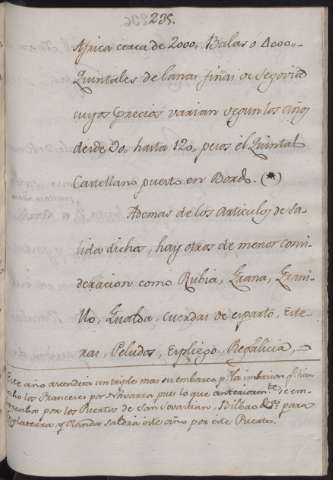 235.
Africa cerca de 2000. Balas o 4000.
Quintales de lanas finas o Segovia
cuyos precios varian segun los años
desde 90, hasta 120, pesos el Quintal
Castellano puesto en Bordo. (*)
Ademas de los articulos de sa-
lida dichos, hay otros de menos consi-
deracion como Rubia, Grana, Grani-
llo, Gualda, cuerdas de esparto, Este-
ras, Peludos, Espliego, Regalicia,
Este año ascendera un triple mas su embarco pr. la imbasion qe. han
hecho los Franceses por Navarra pues lo que anteriormte. de em-
barcaba por los Puertos de San Sevastian, Bilbao &c. para
Inglaterra y Olanda saldra este año por este Puerto.